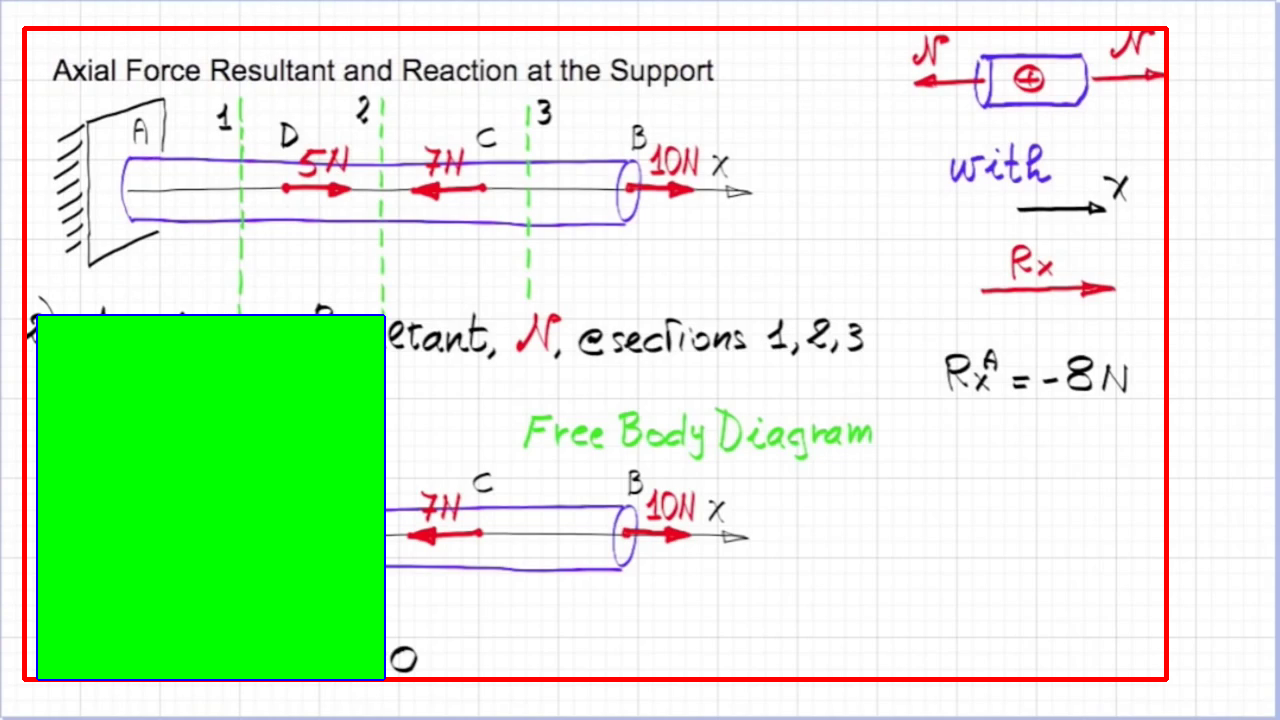 Axial Force Resultant and Reaction at the Support
N N
1 2 3
A D C B
5N 7N 10N X
with
X
Rx
etant, N, @sections 1,2,3
RxA = -8N
Free Body Diagram
C B
7N 10N X
0